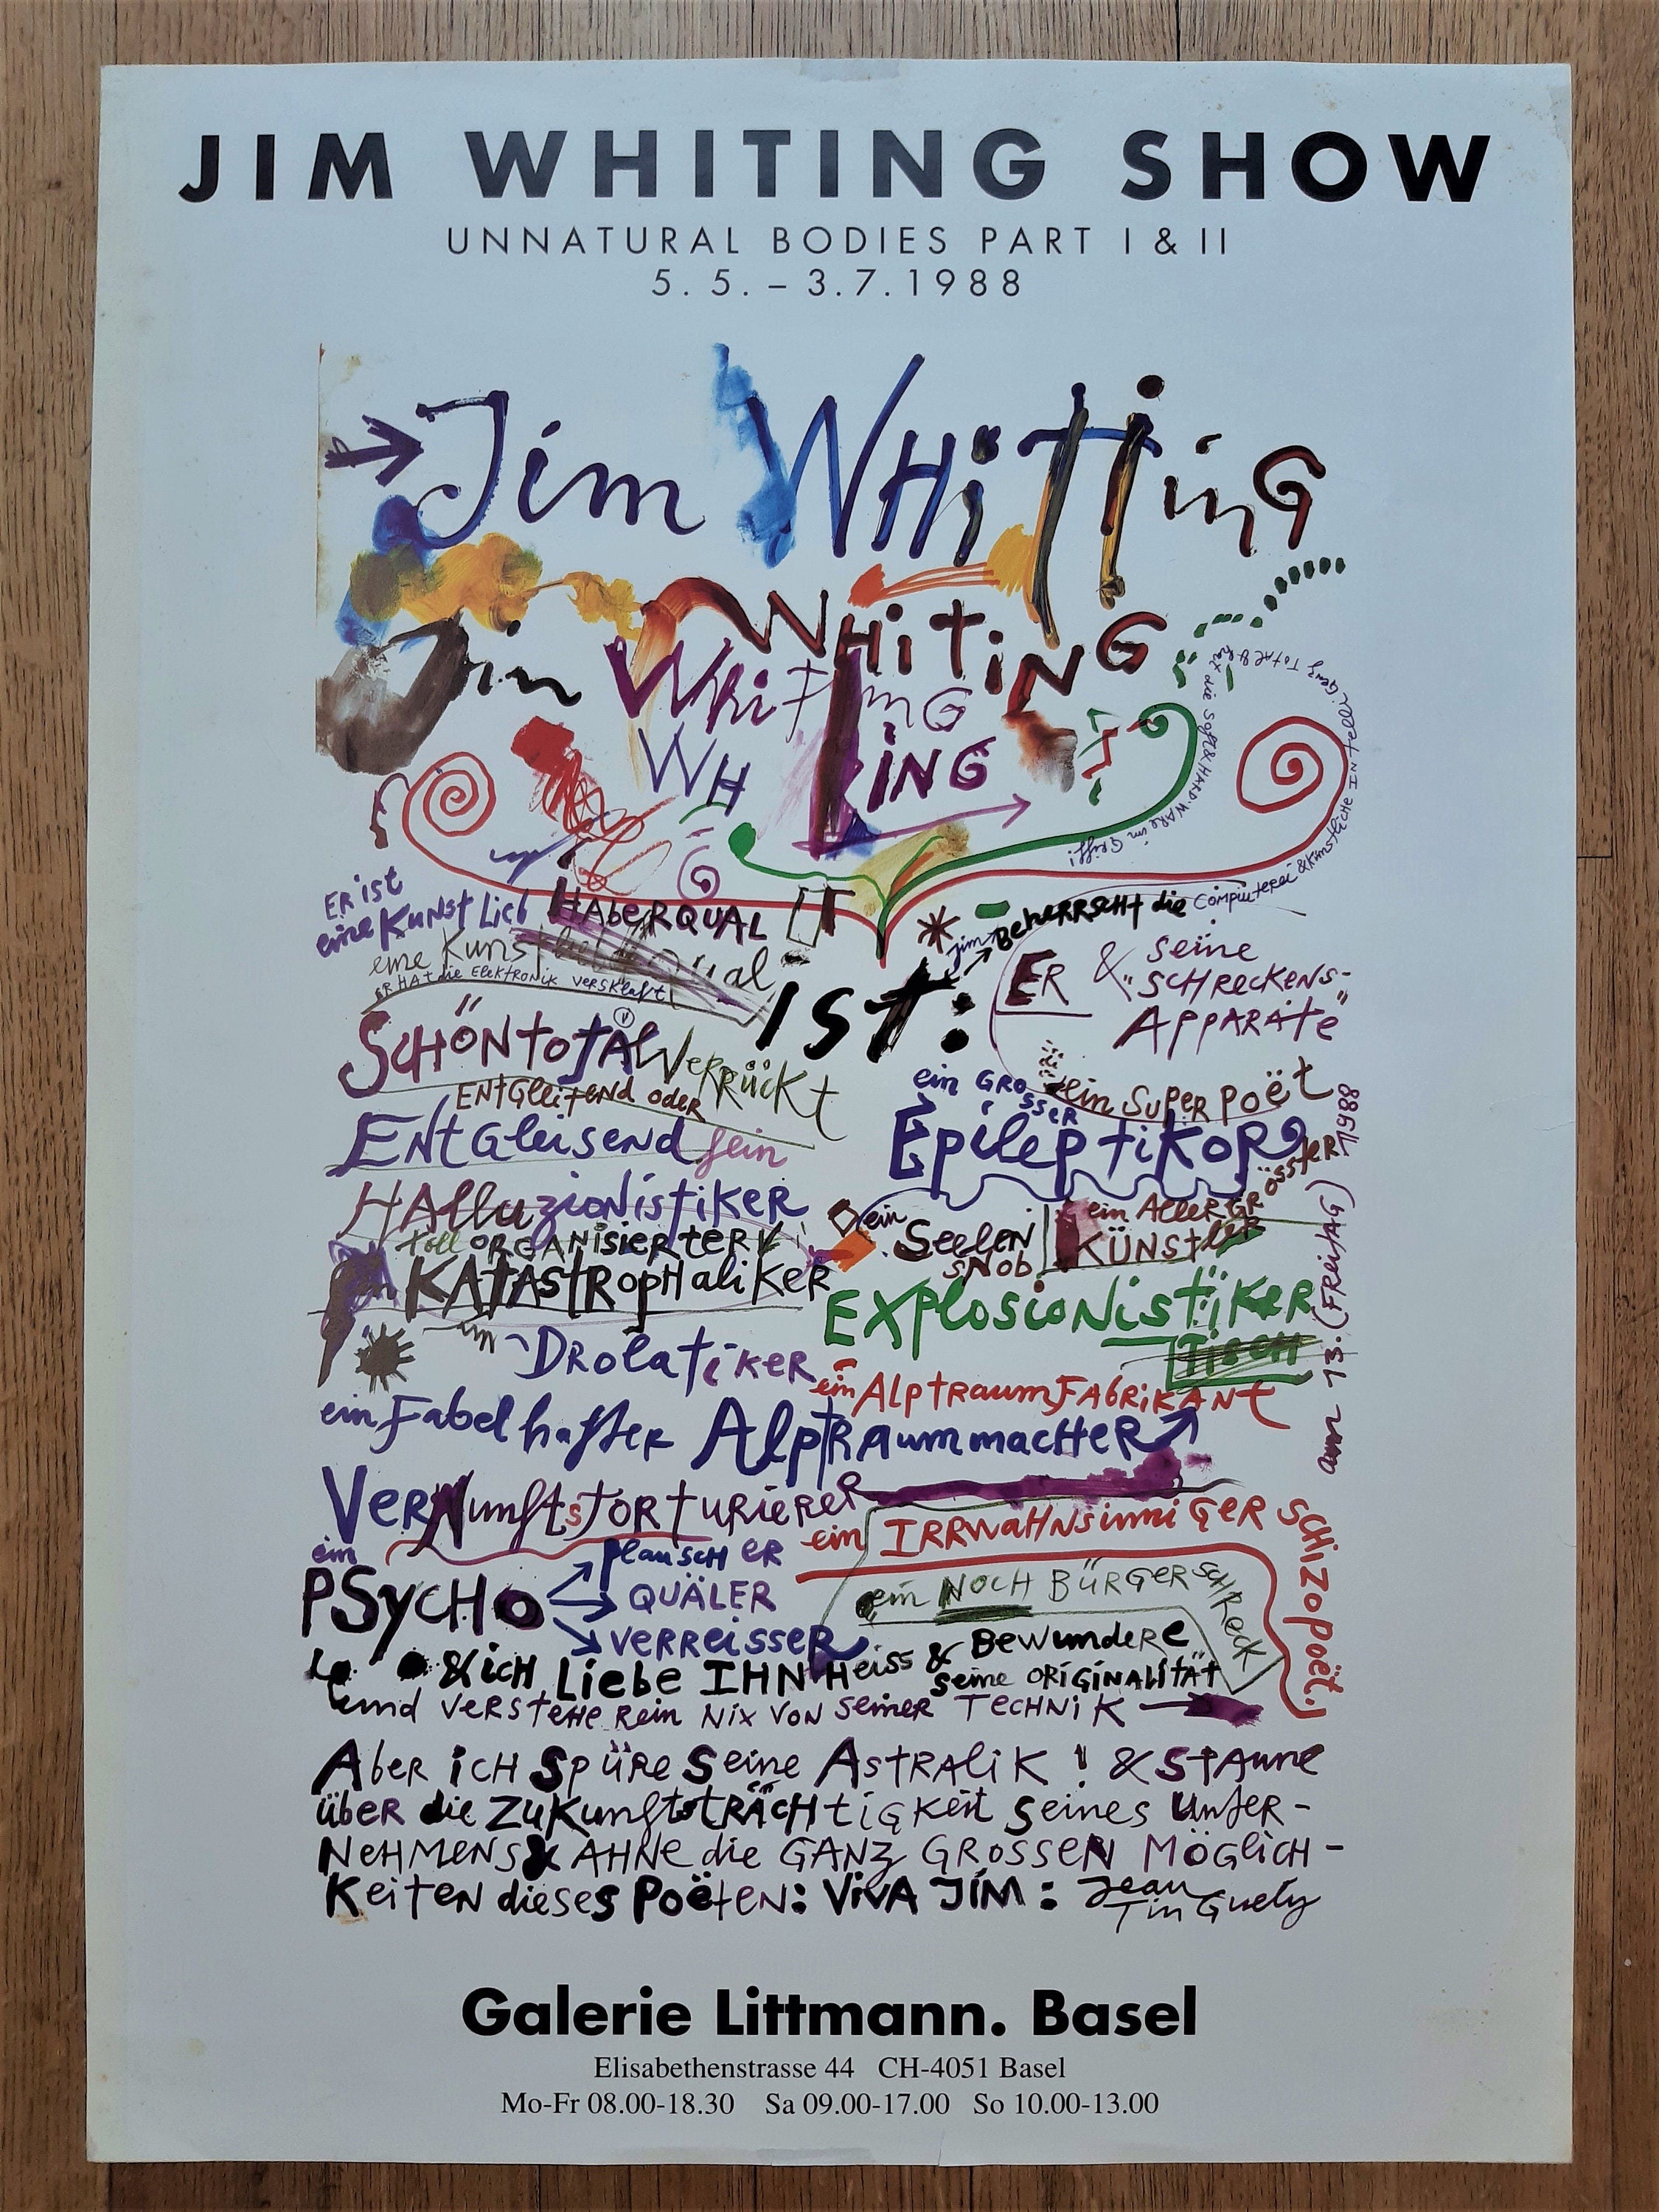 JIM WHITING SHOW
UNNATURAL BODIES PART I & II
5. 5. – 3.7.1988
Jim WHiTTinG
Jim WHiTiNG
WhiTinG
WH iNG
ER ist
eine Kunst Lieb HABERQUAL
eine Kunst qual
ER HAt die ElektRonik versklaft
ist:
Jim BeHERRSCHt die Compüterei & Künstliche INtelligenz TOTAL & hat die Soft & HARDWARe im Griff!
ER & seine
"SCHReckens-
APPARAte"
SCHÖN totAL VeRRückt
ENtGleitend oder
EntGleisend sein
ein SUPER POët
ein GROSSER
Epileptikor
HAlluzionistiKER
toll ORGANisierterV
KATAStRopHaliKER
ein Seelen
SNob
ein AllerGRösster
KÜNStler
EXplosioNistiKER
Tisch
DRolatiKER
ein AlptRaumFABRiKANt
ein Fabelhafter AlptRAummacHeR
VerNunftstorturierer
ein IRRWAHNsinniGER SCHIZOPOët.
ein
PSycHo
plauschER
QUÄLER
VERReisseR
ein NOCH BÜRGERSCHReck
& icH Liebe IHN Heiss & BewundeRE
seine ORiGiNALität
und VerSteHe Rein Nix VON Seiner TecHNiK
Aber icH Spüre Seine AStRALiK ! & StAune
über die ZuKunftstRäcHtiGKeit Seines Unter-
NeHMeNS & AHNe die GANZ GROSSEN MÖGLicH-
Keiten dieses Poëten: ViVA JiM : Jean
TinGuely
am 13. (FReitAG) 1988
Galerie Littmann. Basel
Elisabethenstrasse 44 CH-4051 Basel
Mo-Fr 08.00-18.30 Sa 09.00-17.00 So 10.00-13.00